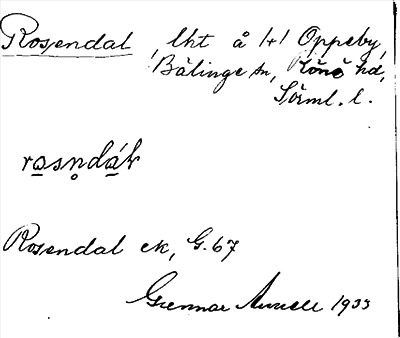 Rosendal, lht å 1/1 Oppeby,
Bälinge sn, Rönö hd,
Sörml. l.
rasṇdáɫ
Rosendal ek, G.67
Gunnar 1933